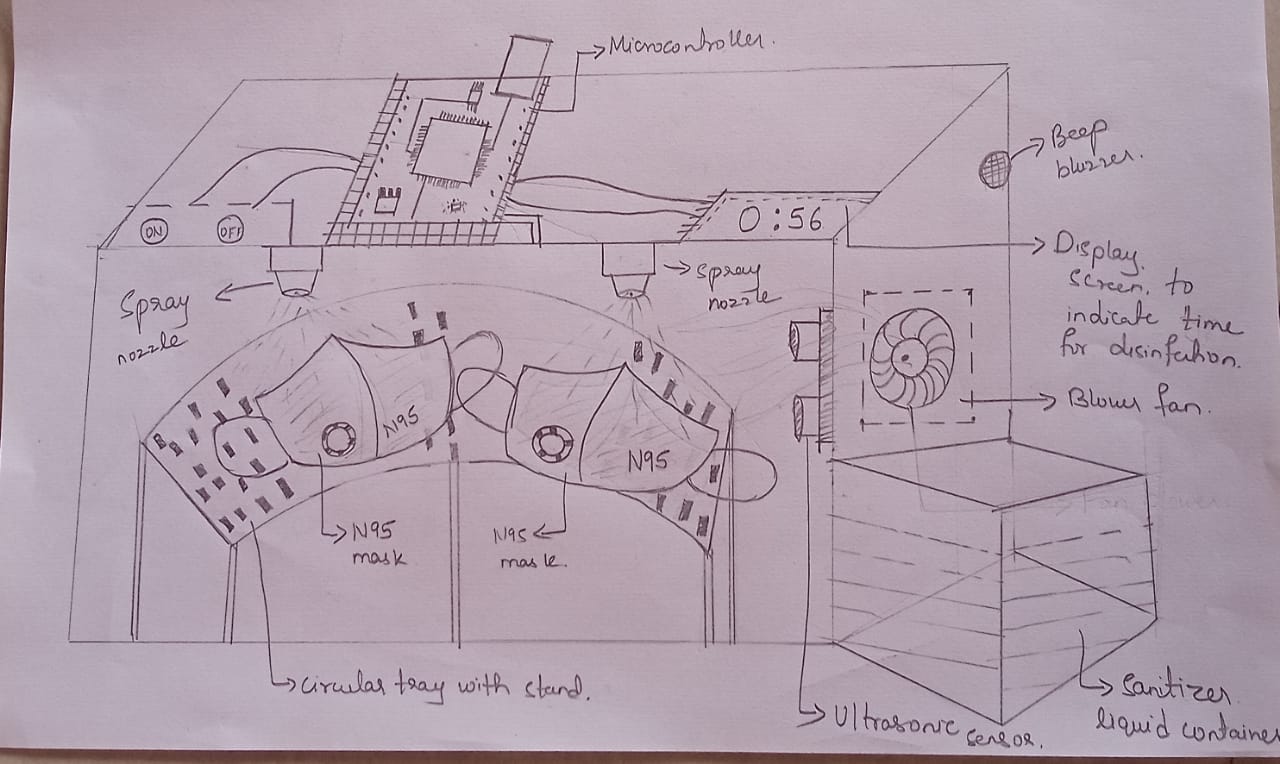 Microcontroller.
Beep
bluzzer.
ON
OFF
0:56
Display
screen to
indicate time
for disinfection.
Spray
nozzle
Spray
nozzle
Blower fan.
N95
N95
N95
mask
N95
mask.
Circular tray with stand.
Ultrasonic
sensor.
Sanitizer
liquid container